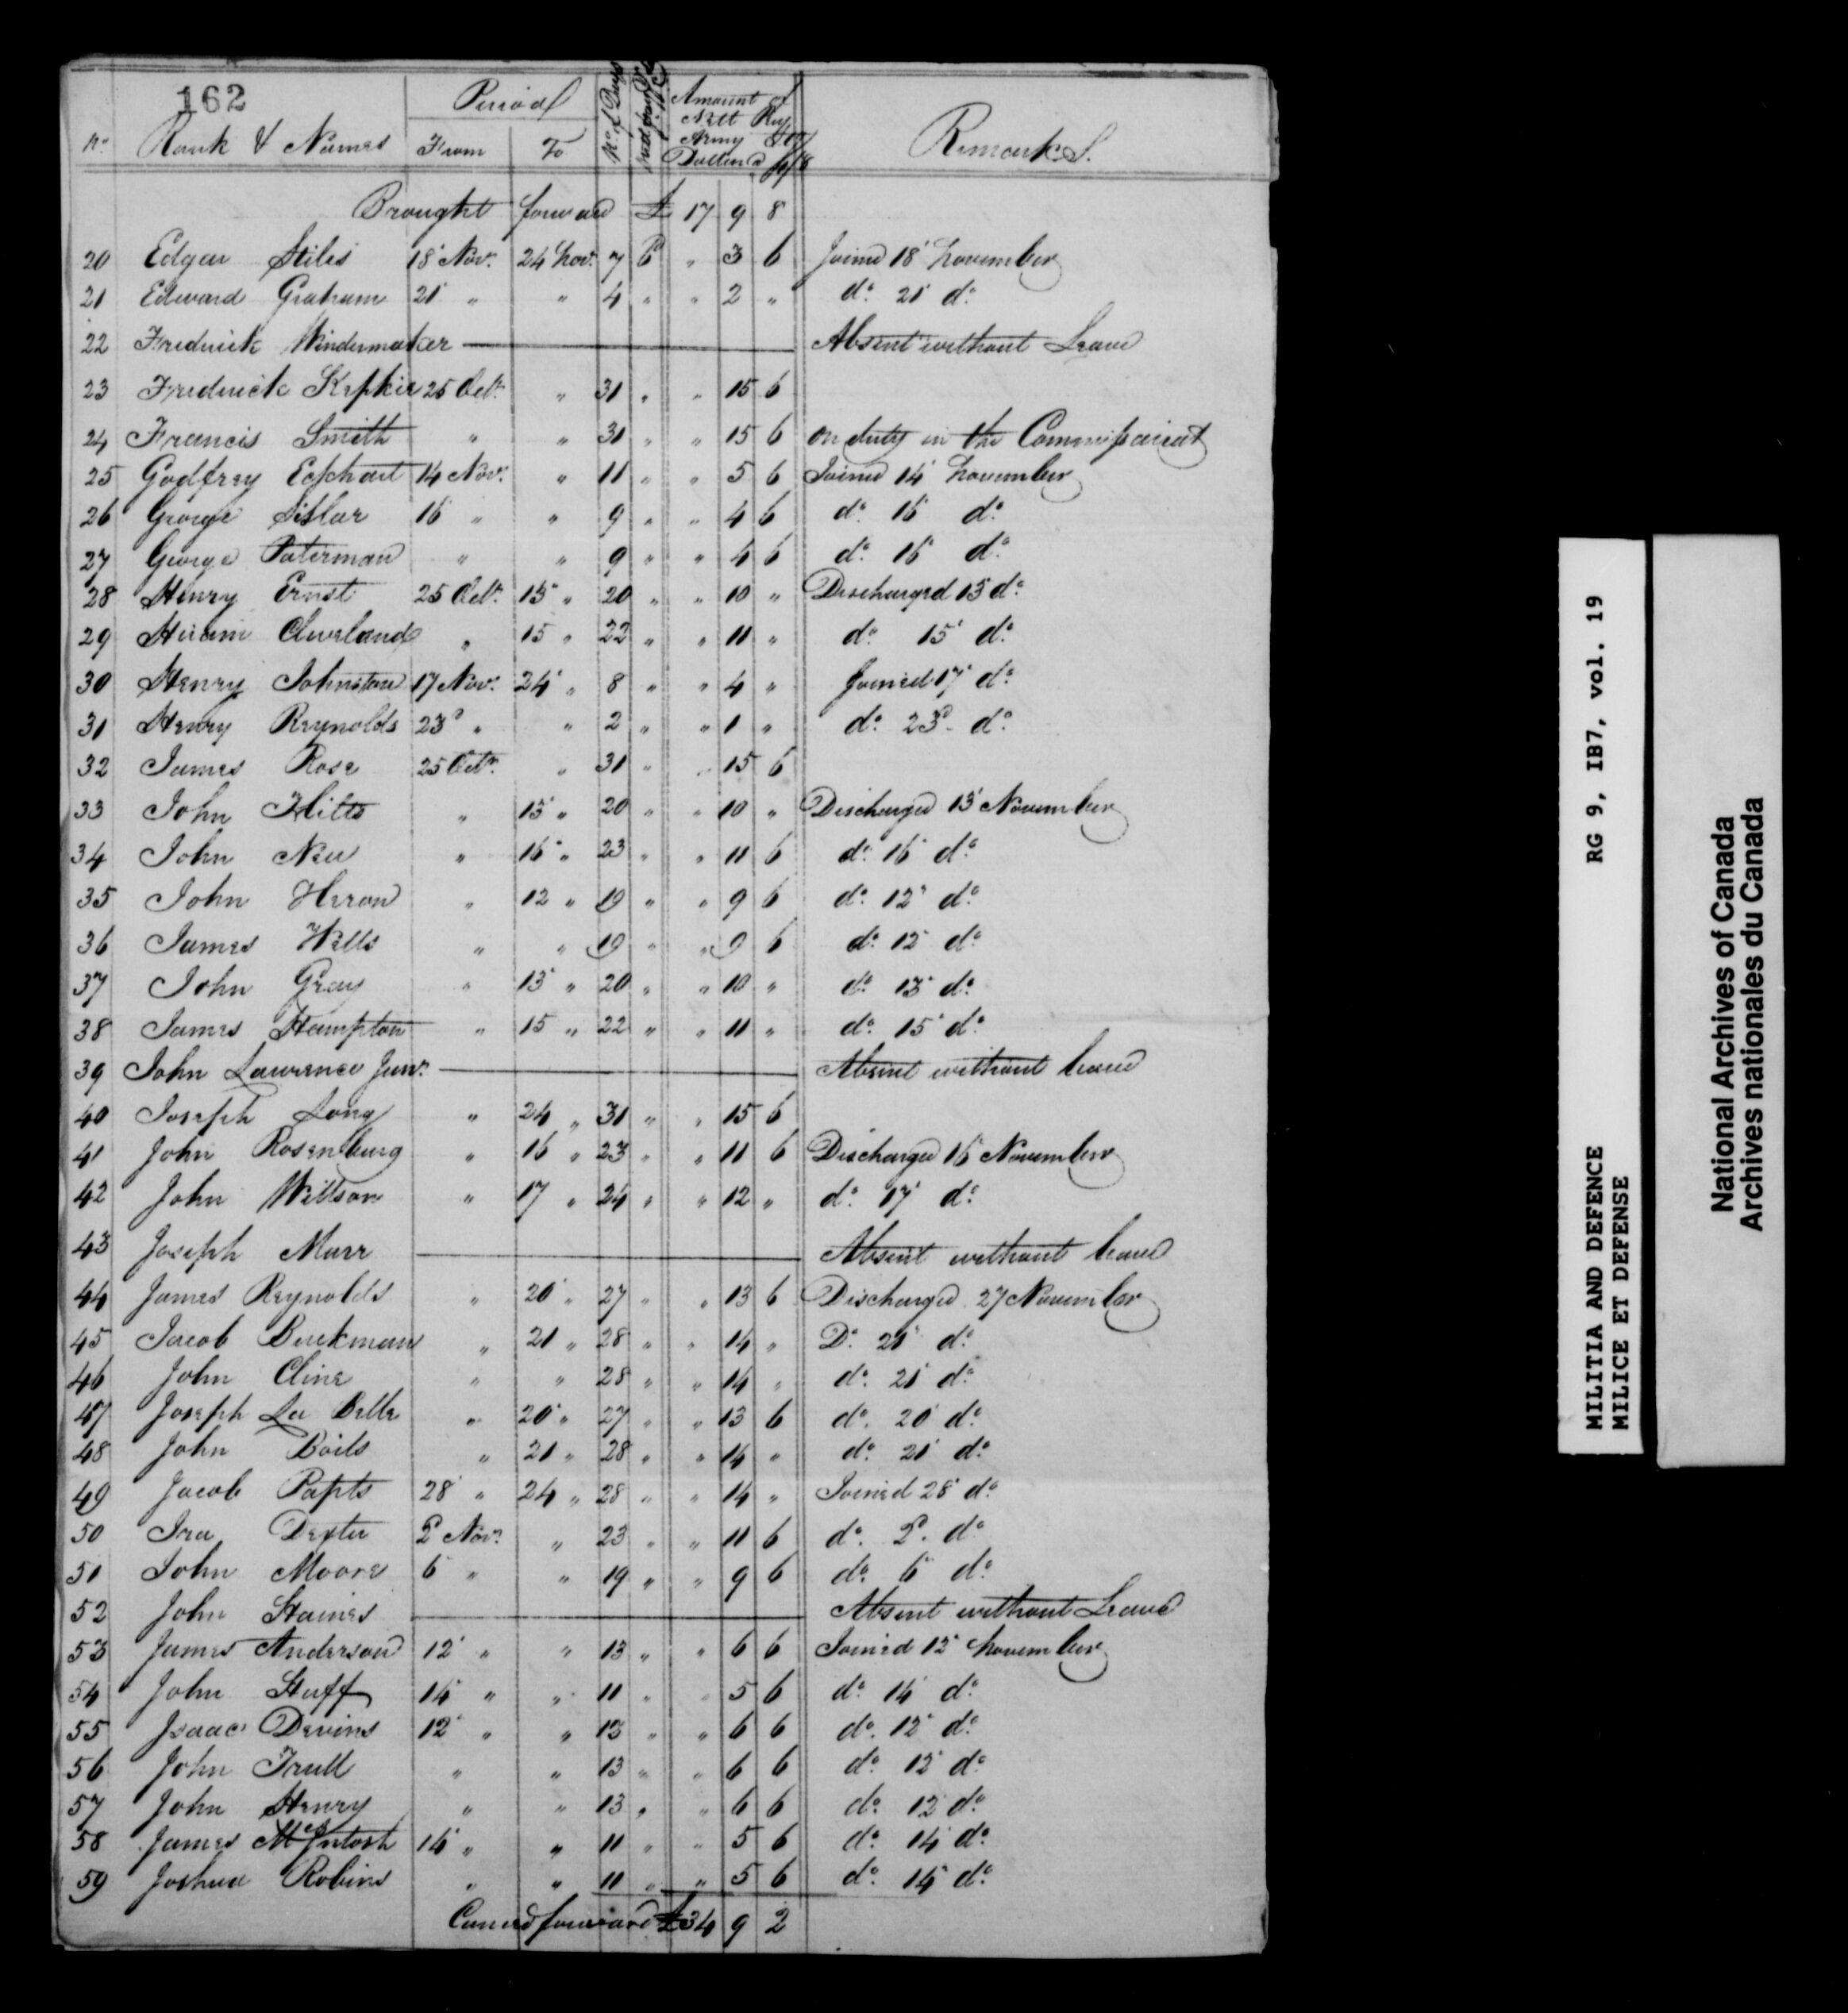 162
No. Rank & Names Period From To No. of Days Amount of Nett Pay Army Dollers @ Remarks.
Brought forward £ 17 9 8
20 Edgar Stiles 18 Nov. 24 Nov. 7 6 " 3 6 Joined 18 November
21 Edward Graham 21 " " 4 " " 2 " do. 21 do.
22 Frederick Windermaker Absent without Leave
23 Frederick Kepkie 25 Octr. " 31 " " 15 6
24 Francis Smith " " 31 " " 15 6 on duty in the Commissariat
25 Godfrey Eckhart 14 Nov. " 11 " " 5 6 Joined 14 November
26 George Sislar 16 " " 9 " " 4 6 do. 16 do.
27 George Paterman " " 9 " " 4 6 do. 16 do.
28 Henry Ernst 25 Octr. 13 " 20 " " 10 " Discharged 13 do.
29 Hiram Cleveland " 15 " 22 " " 11 " do. 15 do.
30 Henry Johnston 17 Nov. 24 " 8 " " 4 " Joined 17 do.
31 Henry Reynolds 23d " " 2 " " 1 " do. 23d do.
32 James Rose 25 Octr. " 31 " " 15 6
33 John Hilts " 13 " 20 " " 10 " Discharged 13 November
34 John New " 16 " 23 " " 11 6 do. 16 do.
35 John Heron " 12 " 19 " " 9 6 do. 12 do.
36 James Wells " " 19 " " 9 6 do. 12 do.
37 John Gray " 13 " 20 " " 10 " do. 13 do.
38 James Hampton " 15 " 22 " " 11 " do. 15 do.
39 John Lawrence Junr. Absent without leave
40 Joseph Long " 24 " 31 " " 15 6
41 John Rosenburg " 16 " 23 " " 11 6 Discharged 16 November
42 John Willson " 17 " 24 " " 12 " do. 17 do.
43 Joseph Marr Absent without leave
44 James Reynolds " 20 " 27 " " 13 6 Discharged 27 November
45 Jacob Beckman " 21 " 28 " " 14 " Do. 21 do.
46 John Cline " " 28 " " 14 " do. 21 do.
47 Joseph La Belle " 20 " 27 " " 13 6 do. 20 do.
48 John Boils " 21 " 28 " " 14 " do. 21 do.
49 Jacob Papts 28 " 24 " 28 " " 14 " Joined 28 do.
50 Ira Dexter 2d Nov. " 23 " " 11 6 do. 2d. do.
51 John Moore 6 " " 19 " " 9 6 do. 6 do.
52 John Staines Absent without Leave
53 James Anderson 12 " " 13 " " 6 6 Joined 12 November
54 John Huff 14 " " 11 " " 5 6 do. 14 do.
55 Isaac Devins 12 " " 13 " " 6 6 do. 12 do.
56 John Trull " " 13 " " 6 6 do. 12 do.
57 John Henry " " 13 " " 6 6 do. 12 do.
58 James McIntosh 14 " " 11 " " 5 6 do. 14 do.
59 Joshua Robins " " 11 " " 5 6 do. 14 do.
Carried forward £34 9 2
MILITIA AND DEFENCE RG 9, IB7, vol. 19
MILICE ET DEFENSE
National Archives of Canada
Archives nationales du Canada